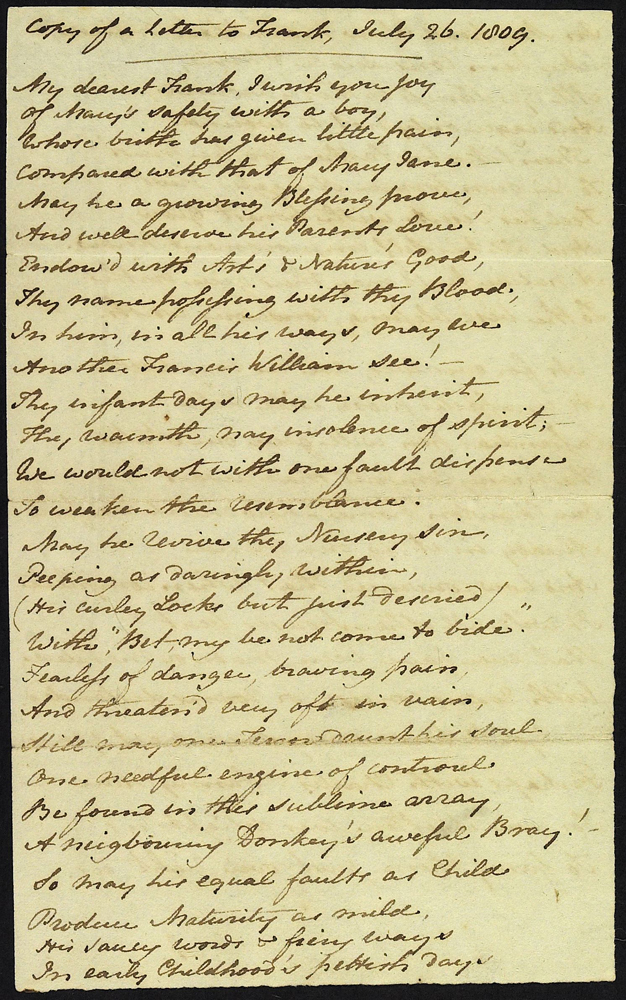 Copy of a Letter to Frank, July 26. 1809.
My dearest Frank, I wish you joy
Of Mary's safety with a boy,
Whose birth has given little pain,
Compared with that of Mary Jane.—
May he a growing Blessing prove,
And well deserve his Parents Love!
Endow'd with Art's & Nature's Good,
Thy name possessing with thy Blood;
In him, in all his ways, may we
Another Francis William see!—
Thy infant days may he inherit,
Thy warmth, nay insolence of spirit;—
We would not with one fault dispense
To weaken the resemblance.
May he revive thy Nursery sin,
Peeping as daringly within,
(His curley Locks but just descried)
With, "Bet, my be not come to bide."
Fearless of danger, braving pain,
And threaten'd very oft in vain,
Still may one Terror daunt his soul
One needful engine of controul
Be found in this sublime array,
A neigbouring Donkey's aweful Bray!—
So may his equal faults as Child
Produce Maturity as mild,
His saucy words & fiery ways
In early Childhood's pettish days